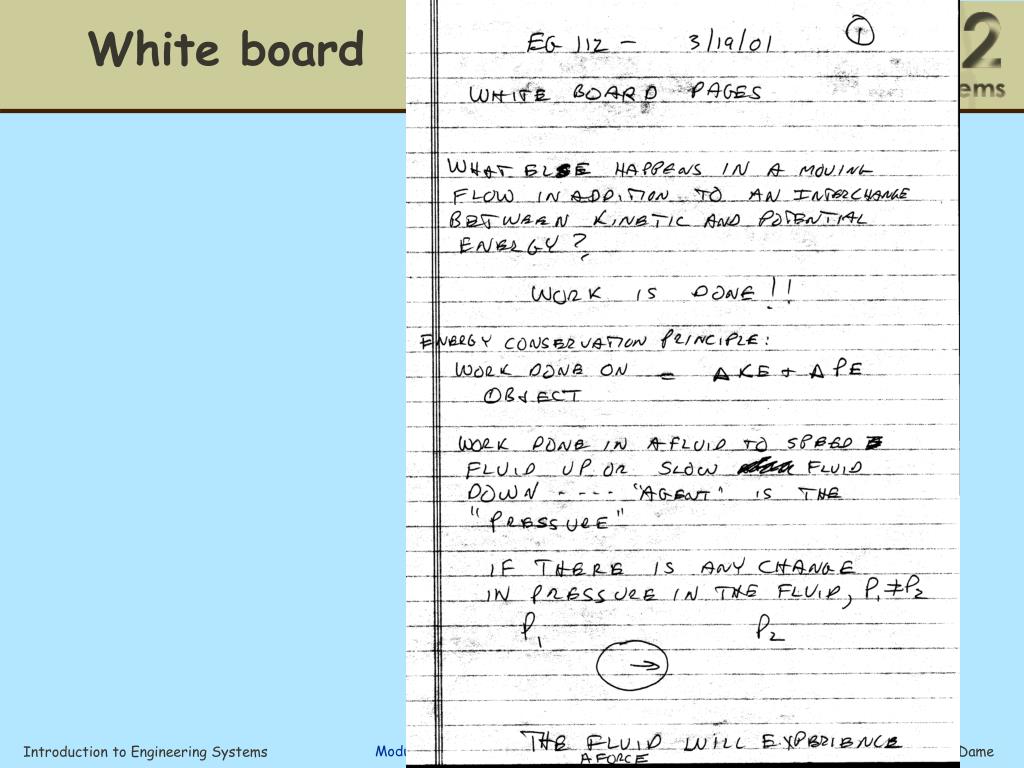 White board
2
ems
EG 112 - 3/19/01 1
WHITE BOARD PAGES
WHAT ELSE HAPPENS IN A MOVING
FLOW IN ADDITION TO AN INTERCHANGE
BETWEEN KINETIC AND POTENTIAL
ENERGY?
WORK IS DONE!!
ENERGY CONSERVATION PRINCIPLE:
WORK DONE ON = Δ KE + Δ PE
OBJECT
WORK DONE IN A FLUID TO SPEED
FLUID UP OR SLOW FLUID
DOWN ---- "AGENT" IS THE
"PRESSURE"
IF THERE IS ANY CHANGE
IN PRESSURE IN THE FLUID, P₁≠P₂
P₁ P₂
THE FLUID WILL EXPERIENCE
A FORCE
Introduction to Engineering Systems Modu Dame